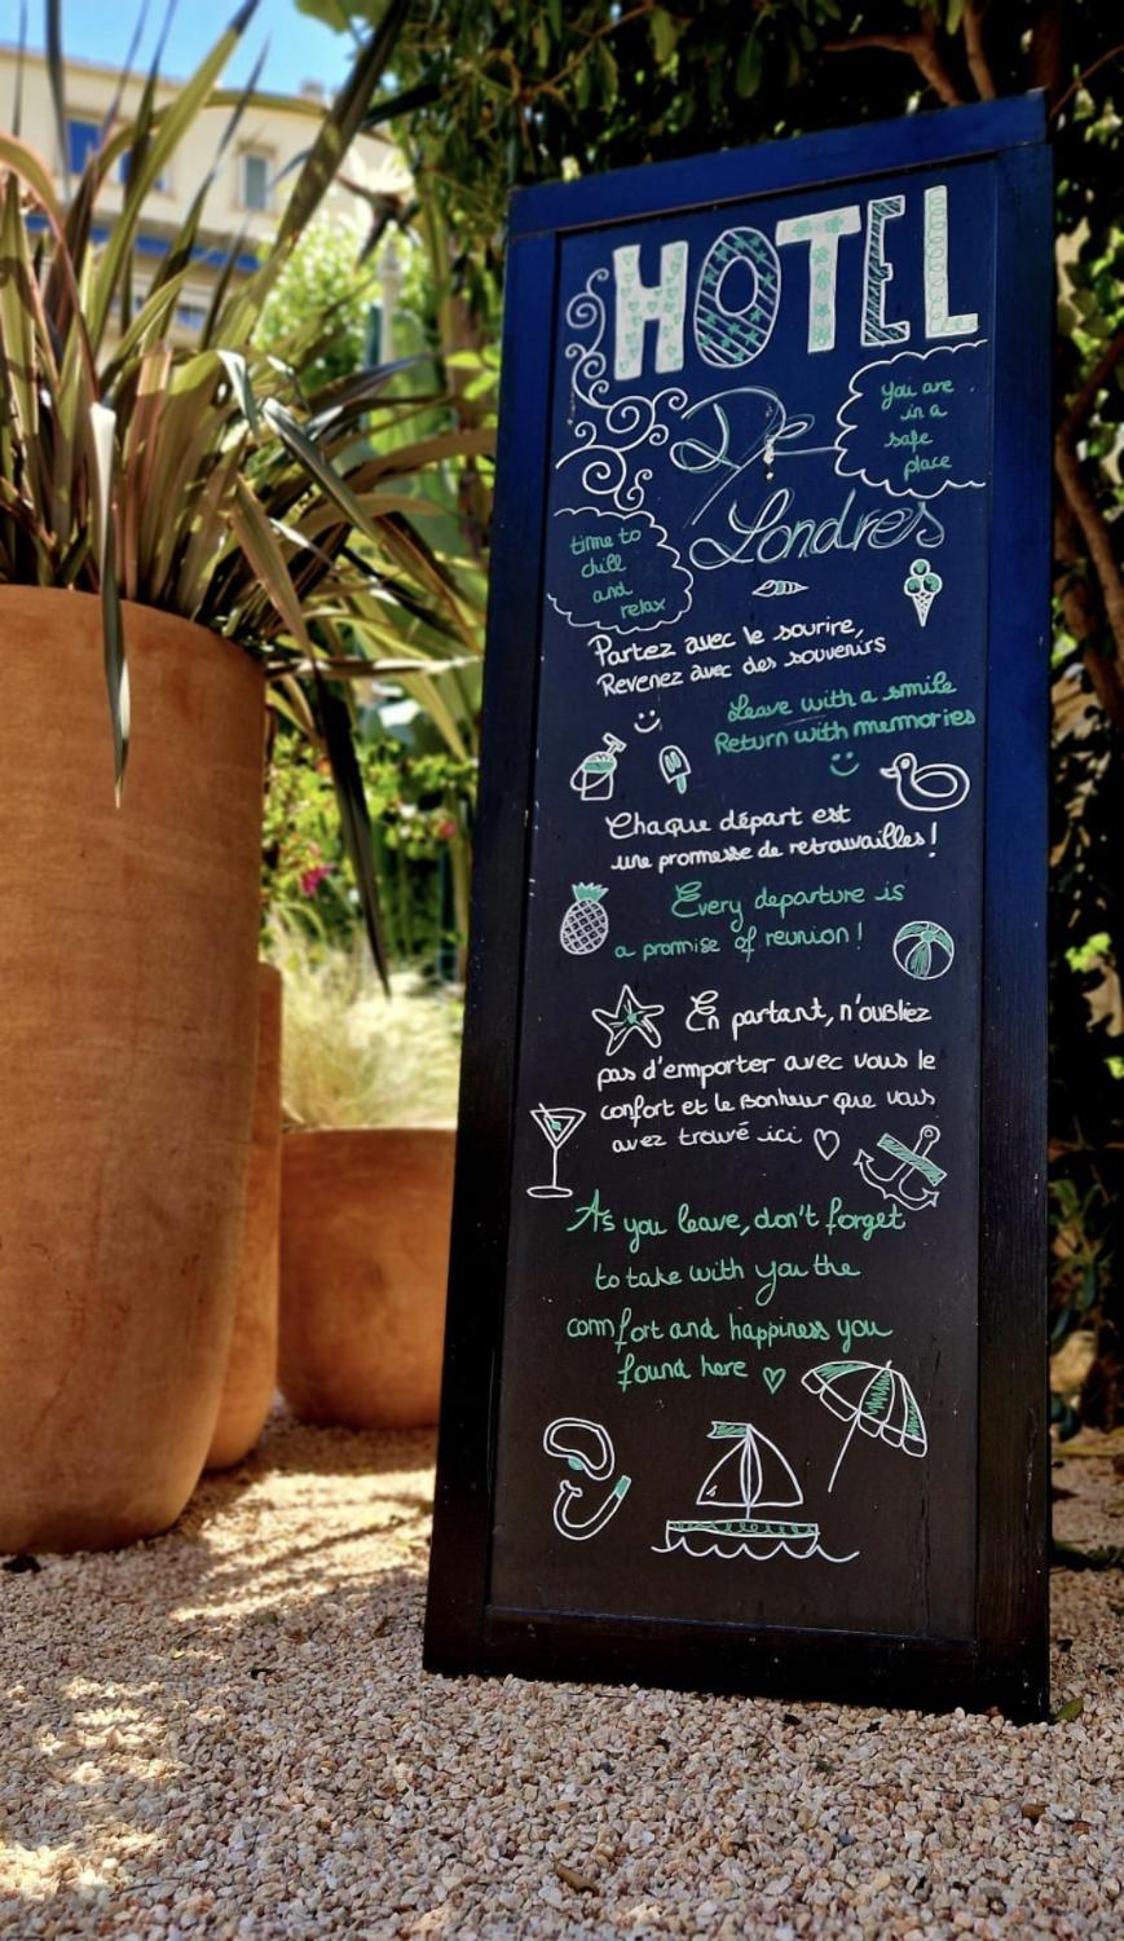 HOTEL
De
Londres
You are
in a
safe
place
time to
chill
and
relax
Partez avec le sourire,
Revenez avec des souvenirs
Leave with a smile
Return with memories
Chaque départ est
une promesse de retrouvailles!
Every departure is
a promise of reunion!
En partant, n'oubliez
pas d'emporter avec vous le
confort et le Bonheur que vous
avez trouvé ici
As you leave, don't forget
to take with you the
comfort and happiness you
found here